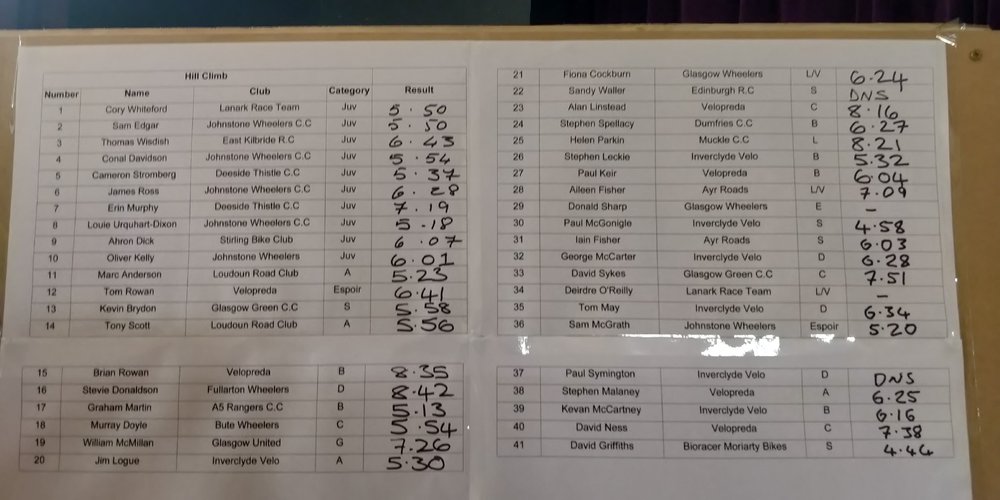 Hill Climb
Number Name Club Category Result
1 Cory Whiteford Lanark Race Team Juv 5.50
2 Sam Edgar Johnstone Wheelers C.C Juv 5.50
3 Thomas Wisdish East Kilbride R.C Juv 6.43
4 Conal Davidson Johnstone Wheelers C.C Juv 5.54
5 Cameron Stromberg Deeside Thistle C.C Juv 5.37
6 James Ross Johnstone Wheelers C.C Juv 6.28
7 Erin Murphy Deeside Thistle C.C Juv 7.19
8 Louie Urquhart-Dixon Johnstone Wheelers C.C Juv 5.18
9 Ahron Dick Stirling Bike Club Juv 6.07
10 Oliver Kelly Johnstone Wheelers Juv 6.01
11 Marc Anderson Loudoun Road Club A 5.23
12 Tom Rowan Velopreda Espoir 6.41
13 Kevin Brydon Glasgow Green C.C S 5.58
14 Tony Scott Loudoun Road Club A 5.56
15 Brian Rowan Velopreda B 8.35
16 Stevie Donaldson Fullarton Wheelers D 8.42
17 Graham Martin A5 Rangers C.C B 5.13
18 Murray Doyle Bute Wheelers C 5.54
19 William McMillan Glasgow United G 7.26
20 Jim Logue Inverclyde Velo A 5.30
21 Fiona Cockburn Glasgow Wheelers L/V 6.24
22 Sandy Waller Edinburgh R.C S DNS
23 Alan Linstead Velopreda C 8.16
24 Stephen Spellacy Dumfries C.C B 6.27
25 Helen Parkin Muckle C.C L 8.21
26 Stephen Leckie Inverclyde Velo B 5.32
27 Paul Keir Velopreda B 6.04
28 Aileen Fisher Ayr Roads L/V 7.09
29 Donald Sharp Glasgow Wheelers E –
30 Paul McGonigle Inverclyde Velo S 4.58
31 Iain Fisher Ayr Roads S 6.03
32 George McCarter Inverclyde Velo D 6.28
33 David Sykes Glasgow Green C.C C 7.51
34 Deirdre O'Reilly Lanark Race Team L/V –
35 Tom May Inverclyde Velo D 6.34
36 Sam McGrath Johnstone Wheelers Espoir 5.20
37 Paul Symington Inverclyde Velo D DNS
38 Stephen Malaney Velopreda A 6.25
39 Kevan McCartney Inverclyde Velo B 6.16
40 David Ness Velopreda C 7.38
41 David Griffiths Bioracer Moriarty Bikes S 4.44